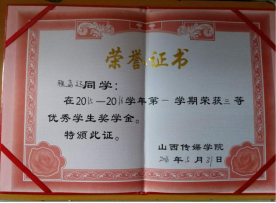 荣誉证书
同学：
在2015—2016学年第一学期荣获三等
优秀学生奖学金。
特颁此证。
山西传媒学院
2016年3月31日